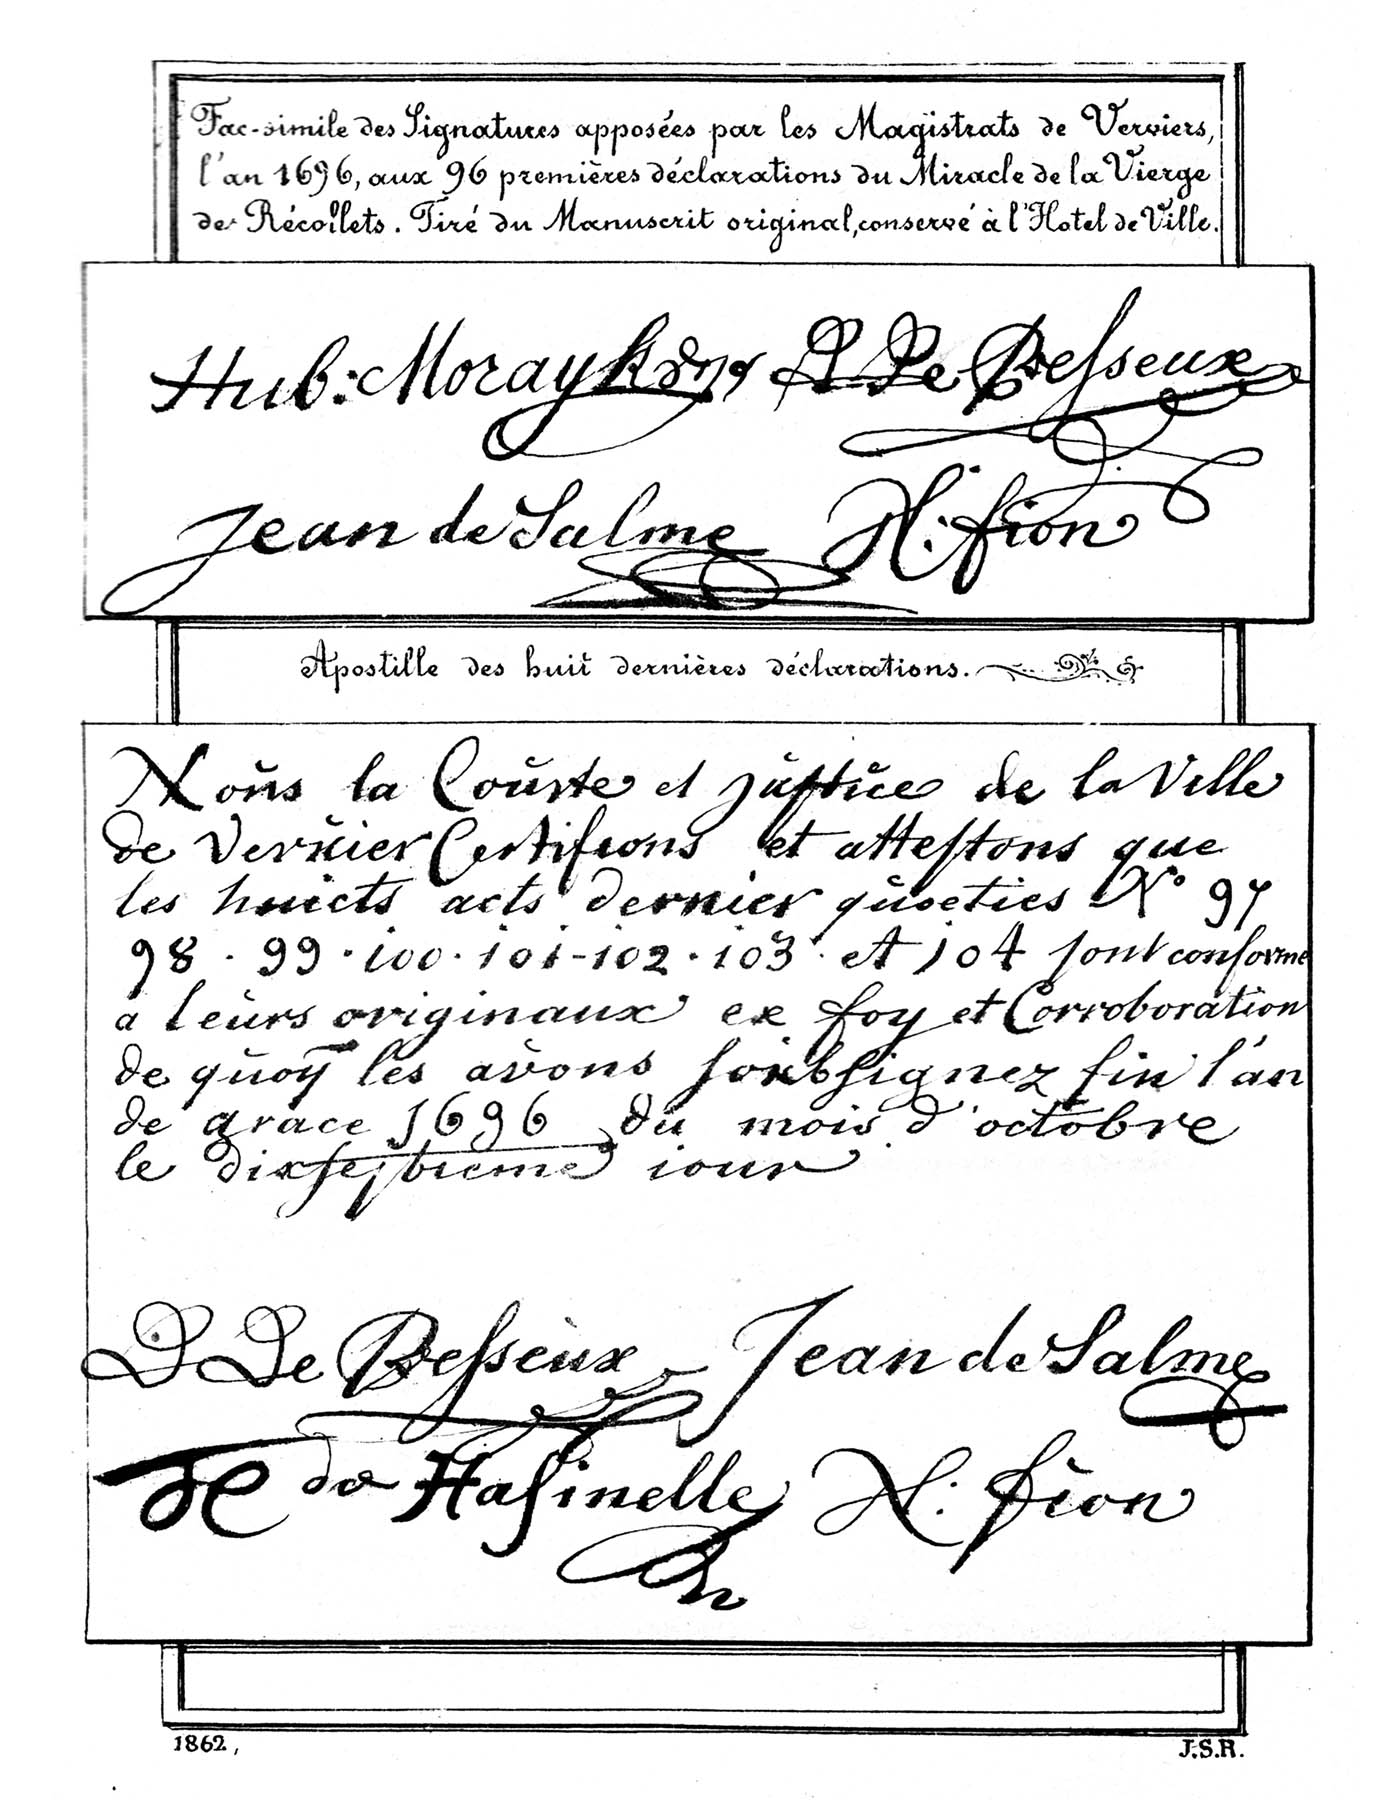 Fac-simile des Signatures apposées par les Magistrats de Verviers,
l'an 1696, aux 96 premières déclarations du Miracle de la Vierge
des Récollets. Tiré du Manuscrit original, conservé à l'Hotel de Ville.
Hub: Moray D De Besseux
Jean de Salme H: fion
Apostille des huit dernières déclarations.
Noŭs la Coŭrte et jŭstice de la Ville
de Vervier Certifions et attestons que
les huicts acts dernier qŭoeties N° 97
98 · 99 · 100 · 101 - 102 · 103 · et 104 sont conforme
a leŭrs originaux ex foy et Corroboration
de qŭoÿ les avons soŭbsignez fin l'an
de grace 1696 du mois d'octobre
le dixseptieme iour
D De Besseŭx Jean de Salme
de Hasinelle H: fion
1862,
J.S.R.